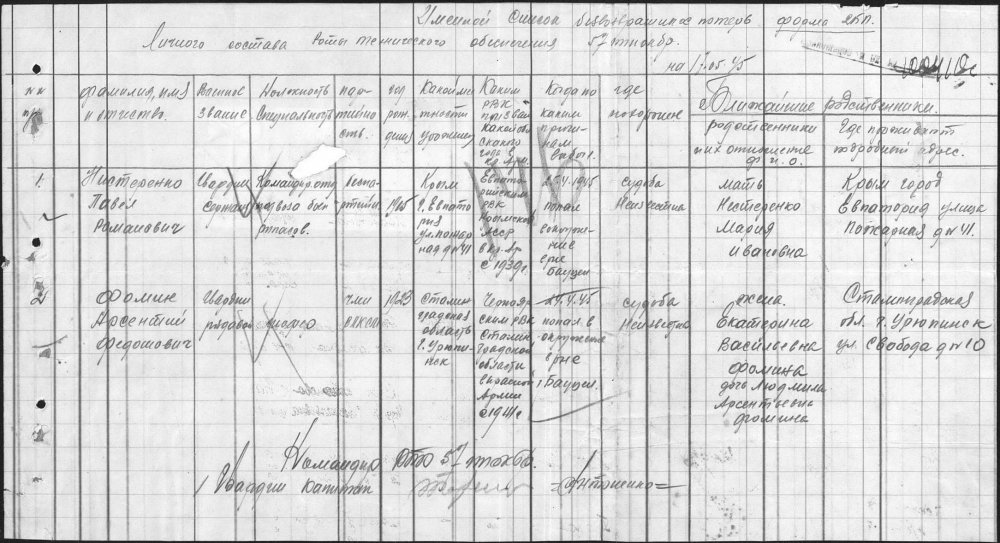 Именной список безвозвратных потерь форма 2БП.
личного состава роты технического обеспечения 57
на 17.05.45
NN
п/п
фамилия, имя
и отчество
Военное
звание
Должность
Специальность
год
рож
дения
Каким
РВК
призван
Когда по
каким
причи-
нам
выбыл.
где
похоронен
Ближайшие родственники.
родственники
и их отношение
Ф И О.
Где проживают
подробный адрес.
1.
Нистеренко
Павел
Романович
Гвардии
Сержант
Командир отд
подвоза боепри
беспа-
ртийн
1905
Крым
г. Евпато
рия
ул. пожар
ная д N 41
Евпато-
рийским
РВК
Крымской
АССР
в кр. Ар
с 1939г.
25.4.1945
попал
в окруже-
ние
в рне
Бауцен
судьба
Неизвестна
мать
Нестеренко
Мария
Ивановна
Крым город
Евпатория улица
Пожарная д N 41.
2
Фомин
Арсентий
Федотович
Гвардии
рядовой
шофер
1923
Сталин
градская
область
г. Урюпи-
нск
РВК
Сталин
градской
области
в красной
Армии
с 1941г
24.4.45
попал в
окружение
в рне
Бауцен.
судьба
Неизвестна
жена.
Екатерина
Васильевна
Фомина
дочь Людмила
Арсентьевна
Фомина
Сталинградская
обл. г. Урюпинск
ул. Свобода д N 10
Командир РТО 57
Гвардии капитан
=Антошенко=